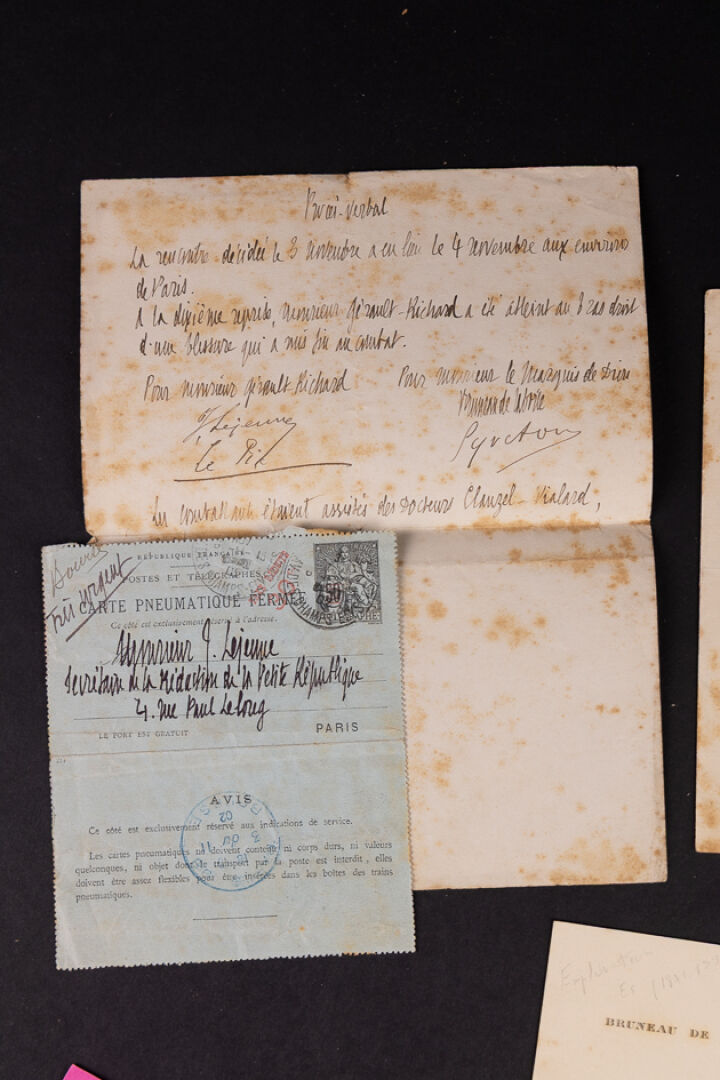 Procès-verbal
La rencontre décidée le 3 novembre a eu lieu le 4 novembre aux environs
de Paris.
A la dixième reprise, Monsieur Gérault-Richard a été atteint au bras droit
d'une blessure qui a mis fin au combat.
Pour monsieur Gérault-Richard
J. Lejeune
Le Pic
Pour monsieur le Marquis de Dion
Bruneau de Laborie
Syveton
Les combattants étaient assistés des Docteurs Clauzel - Vialard,
Très urgent
RÉPUBLIQUE FRANÇAISE
POSTES ET TÉLÉGRAPHES
CARTE PNEUMATIQUE FERMÉE
Ce côté est exclusivement réservé à l'adresse.
50
Monsieur J. Lejeune
Secrétaire de la Rédaction de la Petite République
4. rue Paul Lelong
LE PORT EST GRATUIT
PARIS
AVIS
Ce côté est exclusivement réservé aux indications de service.
Les cartes pneumatiques ne doivent contenir ni corps durs, ni valeurs
quelconques, ni objet dont le transport par la poste est interdit, elles
doivent être assez flexibles pour être insérées dans les boîtes des trains
pneumatiques.
BRUNEAU DE